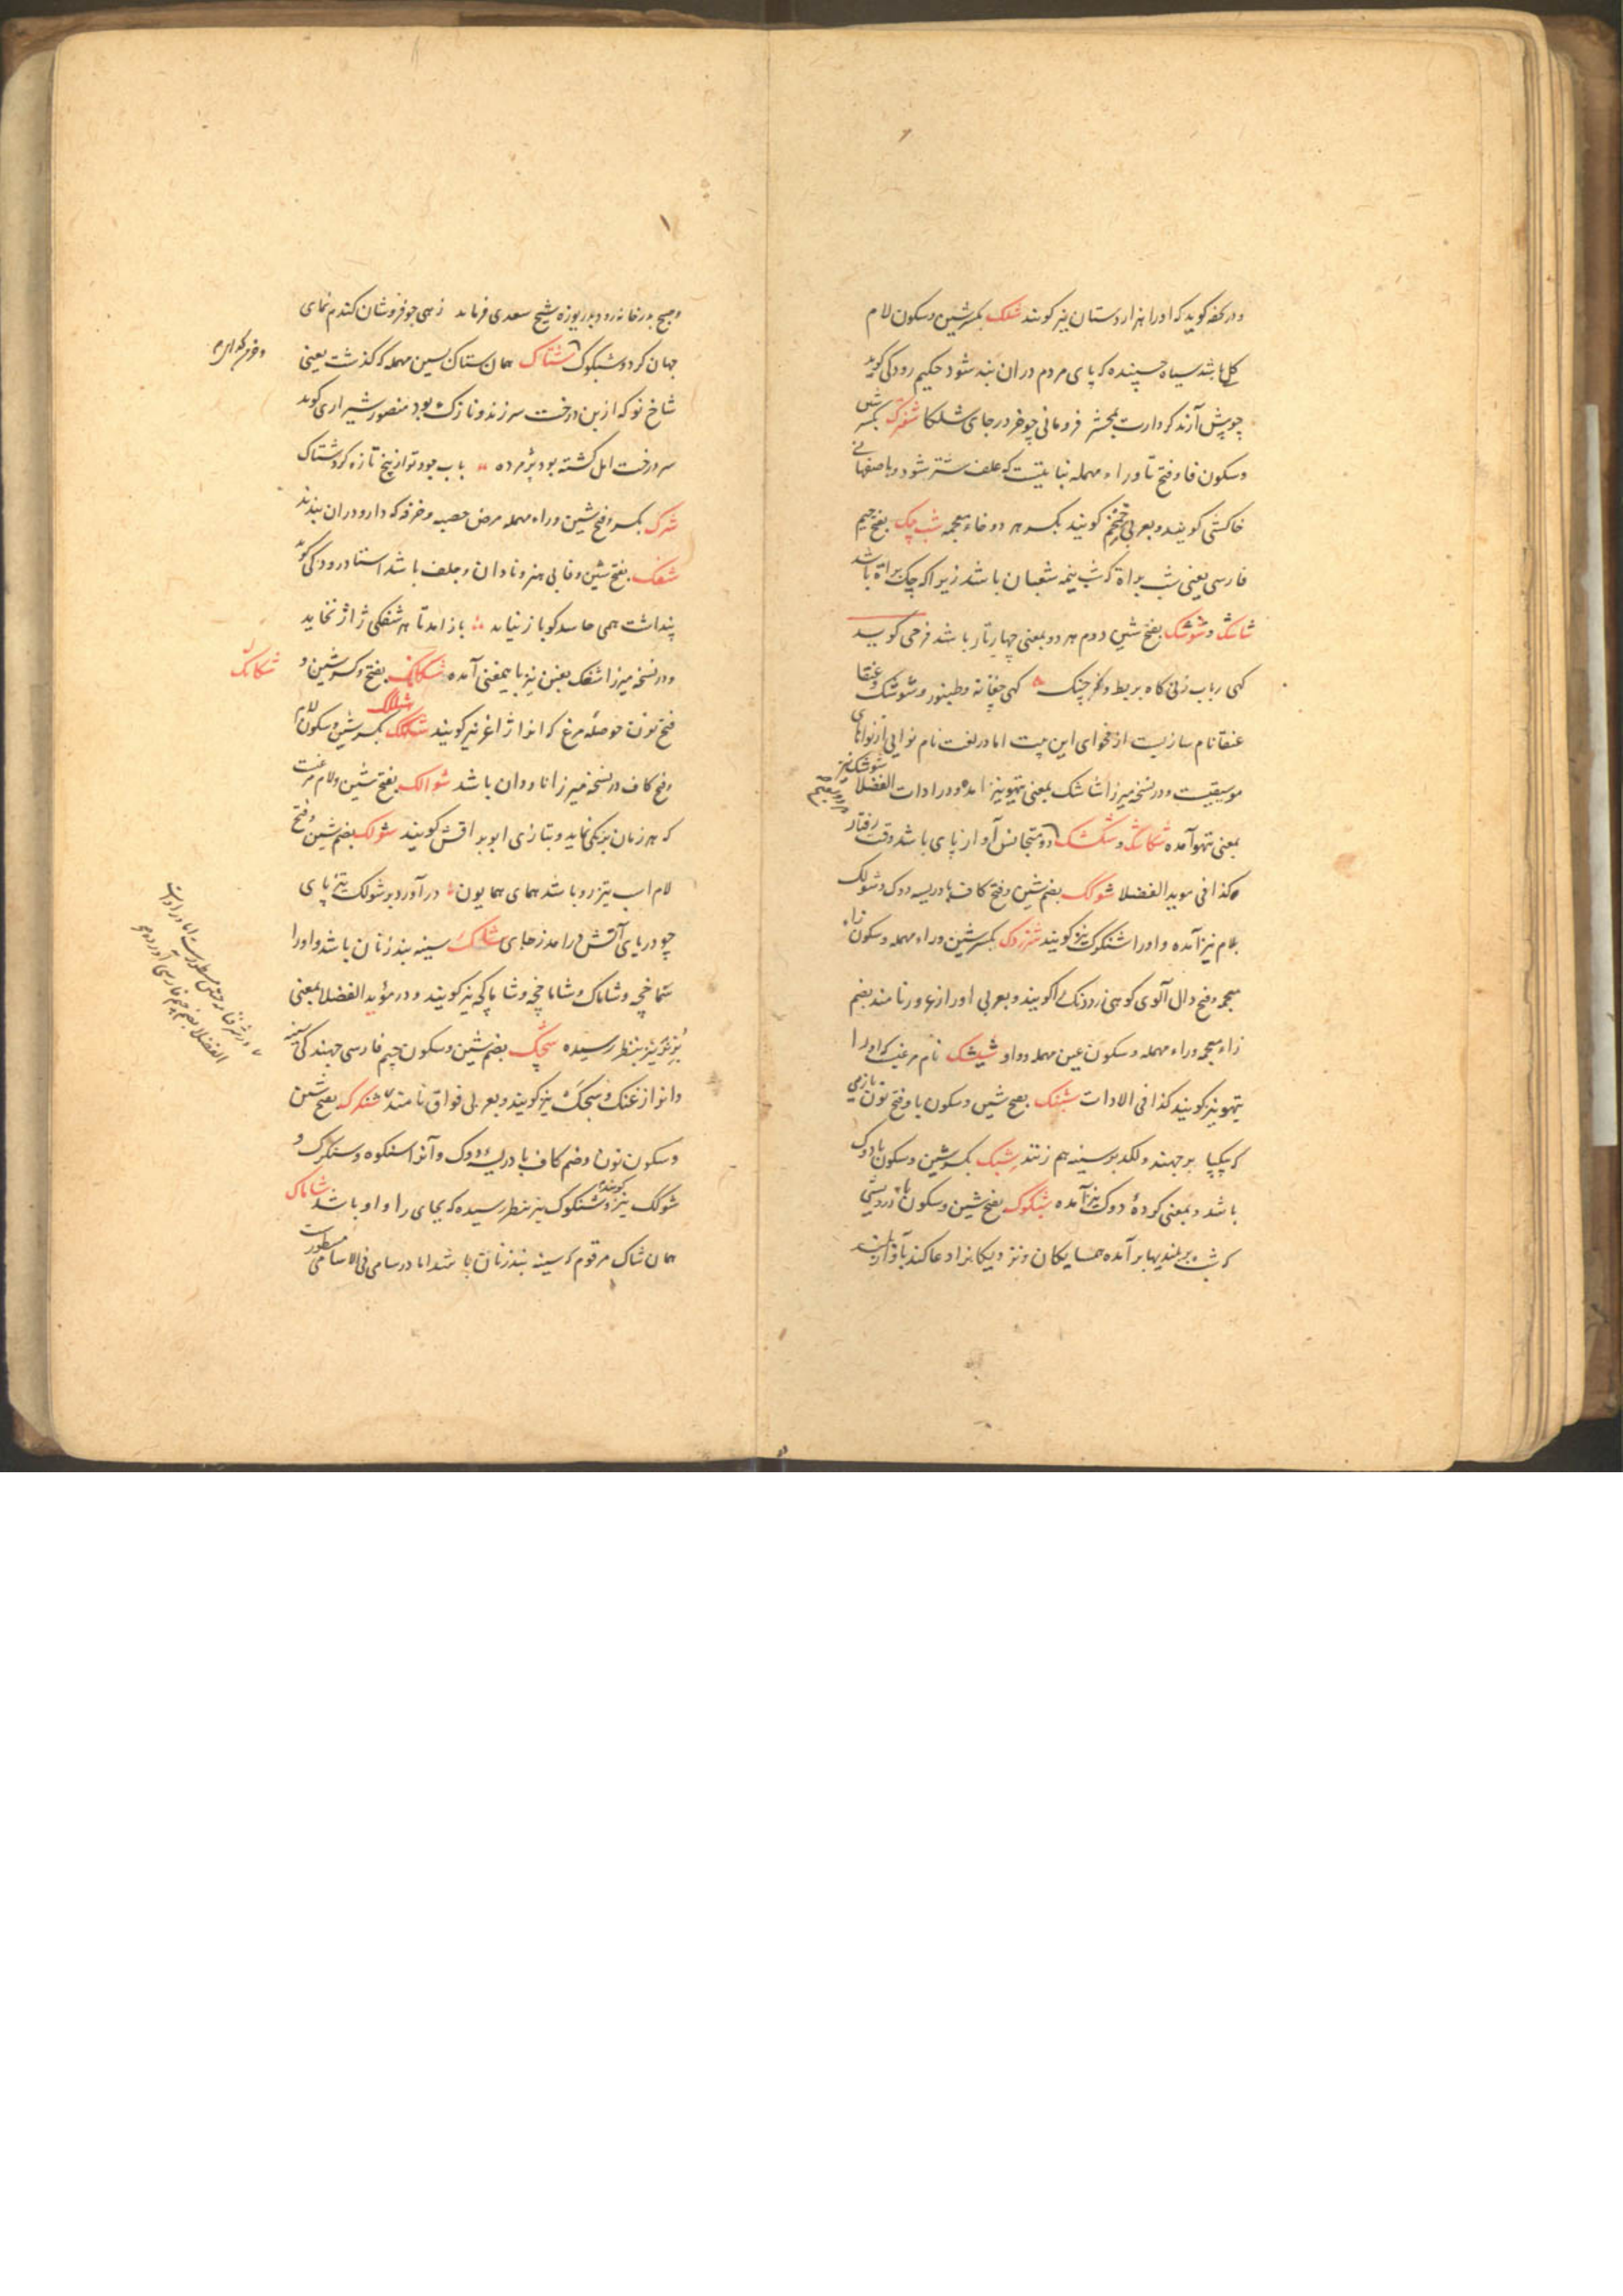 و در تحفه گوید که او را هزار دستان نیز گویند شلک بکسر شین و سکون لام
گل باشد سیاه چسپنده که پای مردم در ان بند شود حکیم رودکی گوید
چو پیش آرند کردارت بمحشر فرو مانی چو خر در جای شلکا شفترک بکسر شین
و سکون فا و فتح تا و راء مهمله نباتیست که علف شتر شود و باصفهانی
خاکشی گویند و بعربی خمخم گویند بکسر هر دو خاء معجمه شب چک بفتح جیم
فارسی یعنی شب براة که شب نیمه شعبان باشد زیرا که چک براة باشد
شاشک و شوشک بفتح شین دوم هر دو بمعنی چهارتار باشد فرخی گوید
کهی رباب زنی کاه بربط و کهر چنک کهی چغانه و طنبور و شوشک و عنقا
عنقا نام سازیست از فحوای این بیت اما در لغت نام نوایی از نواهای
موسیقیست و در نسخه میرزا شاشک بمعنی تیهو نیز امده و در ادات الفضلا شوشک نیز
بمعنی تیهو آمده شکاشک و شکشک دو متجانس آواز پای باشد وقت رفتار
کذا فی موید الفضلا شوکک بضم شین و فتح کاف بادریسه دوک و شولک
بلام نیز آمده و او را شنکرک نیز گویند شزردک بکسر شین و راء مهمله و سکون زاء
معجمه و فتح دال آلوی کوهی زردرنک را گویند و بعربی او را زعرور نامند بضم
زاء معجمه و راء مهمله و سکون عین مهمله و واو شیشک نام مرغیست که او را
تیهو نیز گویند کذا فی الادات شبنک بفتح شین و سکون با و فتح نون بازیی
که بیکپا برجهند و لکد بر سینه هم زنند شبک بکسر شین و سکون با دوک
باشد و بمعنی کرده دوک نیز آمده شبکوک بفتح شین و سکون با درویشی
که شب بر بلندیها برآمده همسایکان و نزدیکانرا دعا کند بآواز بلند
و صبح بدر خانه رود بدریوزه شیخ سعدی فرماید زهی جو فروشان کندم نمای
جهان کرد و شبکوک شتاک همان ستاک بسین مهمله که گذشت یعنی
شاخ نو که از بن درخت سر زند و نازک بود منصور شیرازی گوید
سر درخت امل کشته بود پژمرده باب جود تو از بیخ تازه کرد شتاک
شرک بکسر و فتح شین و راء مهمله مرض حصبه و خرقه که دارو در ان بندند
شفک بفتح شین و فا بی هنر و نادان و جلف باشد استاد رودکی گوید
پنداشت همی حاسد کو باز نیاید باز امد تا هر شفکی ژاژ نخاید
و در نسخه میرزا شفنک بنون نیز باین معنی آمده شکانک بفتح و کسر شین و
فتح نون حوصله مرغ که انرا ژاغر نیز گویند شلکک بکسر شین و سکون لام
و فتح کاف در نسخه میرزا ناودان باشد شوالک بفتح شین و لام مرغیست
که هر زمان برنکی نماید و بتازی ابو براقش گویند شولک بضم شین و فتح
لام اسب تیزرو باشد همای همایون در آورد بر شولک تیز پای
چو دریای آتش درامد ز جای شاکک سینه بند زنان باشد و او را
شماخچه و شاماک و شاماخچه و شاماکچه نیز گویند و در مؤید الفضلا بمعنی
نیز بنظر رسیده شجک بضم شین و سکون جیم فارسی جهندکی سینه
و انرا زغنک و سجک نیز گویند و بعربی فواق نامند شنکرک بفتح شین
و سکون نون و ضم کاف بادریسه دوک و آنرا سنکوه و سنکرک و
شوکک نیز گویند و شنکوک نیز بنظر رسیده که بجای را واو باشد شاماک
همان شاک مرقوم که سینه بند زنان باشد اما در سامی فی الاسامی مسطور است
شکانک